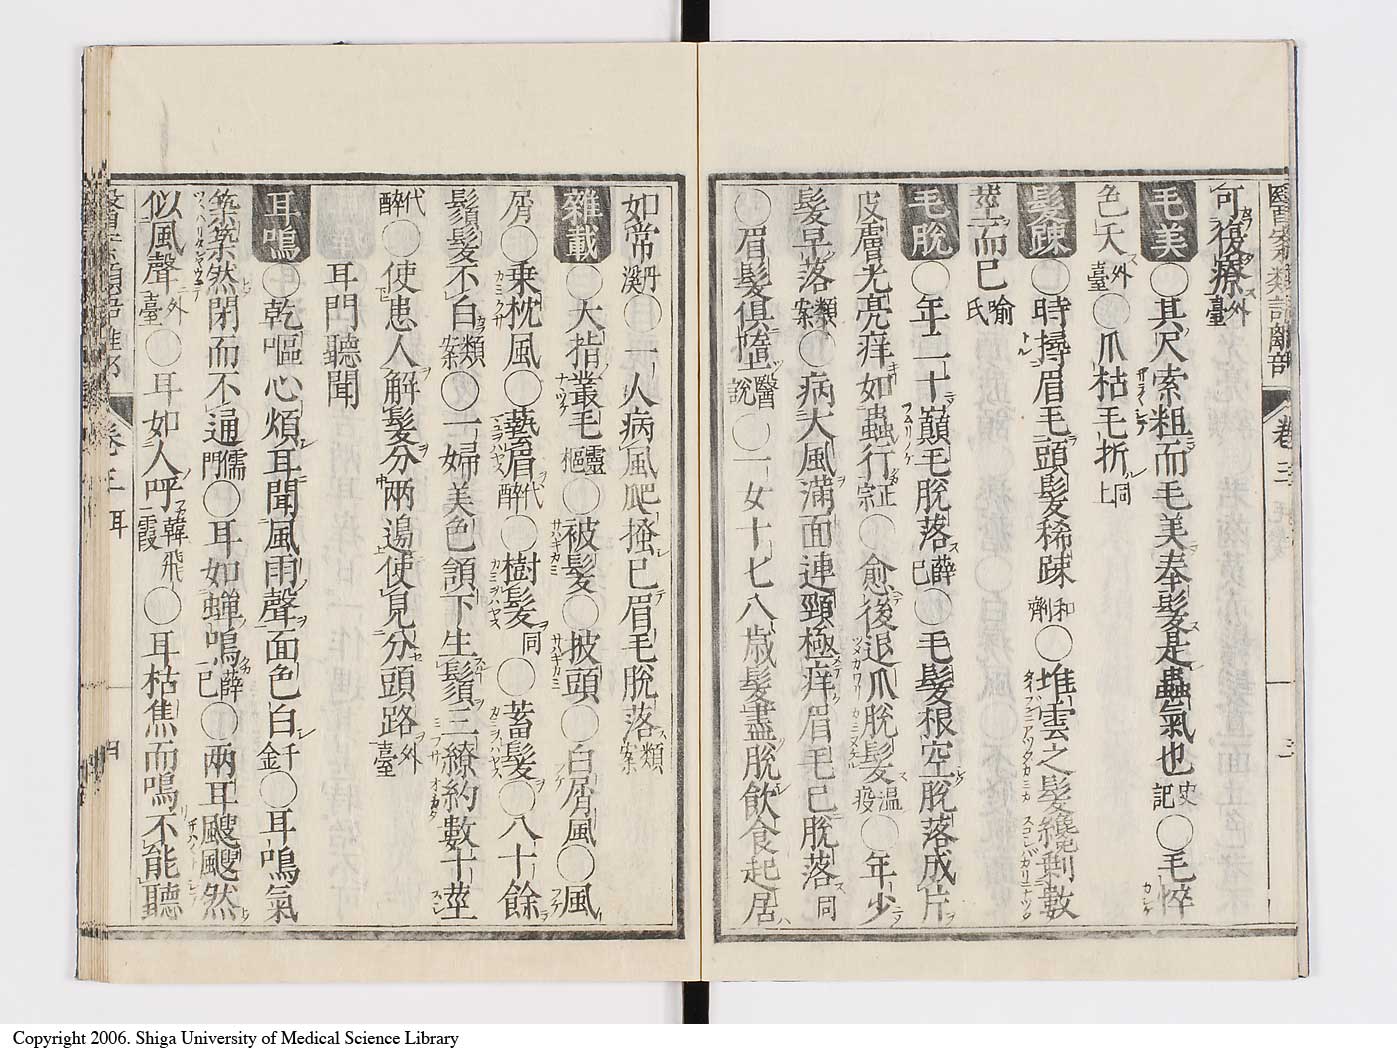 醫案類語雜部 卷三
可復療 外臺
毛美 ○其尺索粗而毛美奉髮是蟲氣也 史記 ○毛悴
色夭 外臺 ○爪枯毛折 同上
髮踈 ○時撏眉毛頭髮稀踈 和劑 ○堆雲之髮纔剩數
莖而已 喻氏
毛脫 ○年二十巔毛脫落 薛已 ○毛髮根空脫落成片
皮膚光亮痒如蟲行 正宗 ○愈後退爪脫髮 溫疫 ○年少
髮早落 類案 ○病大風滿面連頸極痒眉毛已脫落 同
○眉髮俱墮 醫說 ○一女十七八歲髮盡脫飲食起居
如常 丹溪 ○一人病風爬搔已眉毛脫落 類案
雜載 ○大指叢毛 靈樞 ○被髮 ○披頭 ○白屑風 ○風
屑 ○乘枕風 ○藝眉 代醉 ○樹髮 同 ○蓄髮 ○八十餘
鬚髮不白 類案 ○一婦美色頷下生鬚三繚約數十莖
代醉 ○使患人解髮分兩邊使見分頭路 外臺
耳門聽聞
耳鳴 ○乾嘔心煩耳聞風雨聲面色白 千金 ○耳鳴氣
築築然閉而不通 儒門 ○耳如蟬鳴 薛已 ○兩耳颼颼然
似風聲 外臺 ○耳如人呼 韓飛霞 ○耳枯焦而鳴不能聽
卷三 耳 四
Copyright 2006. Shiga University of Medical Science Library